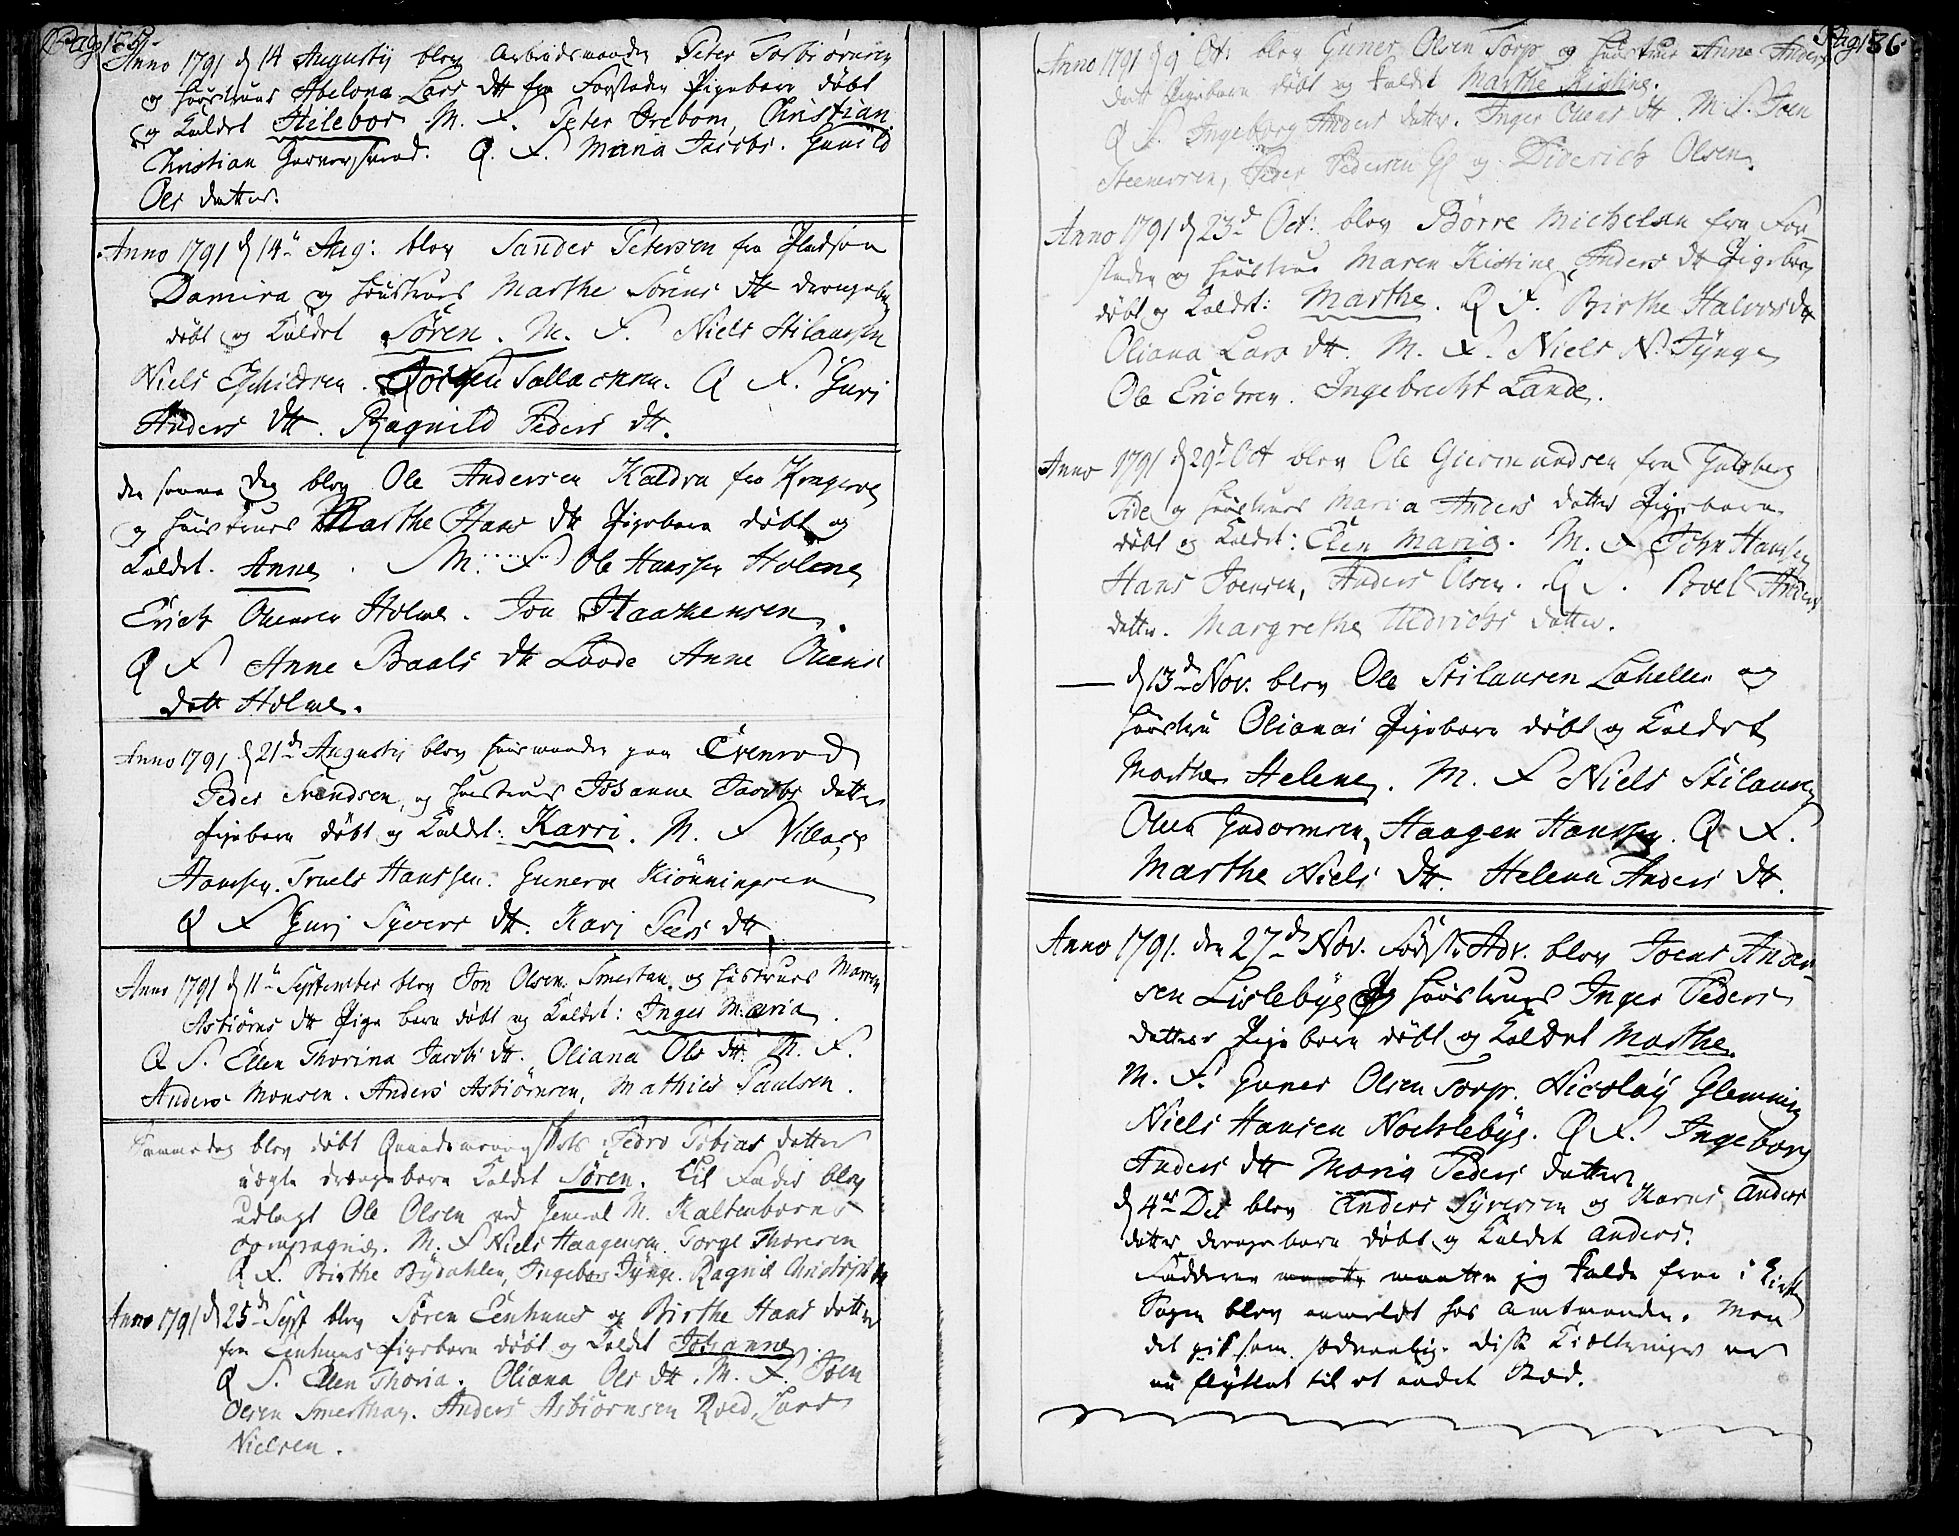 Pag 185.
Anno 1791 d 14 Augustij blev Arbeidsmanden Peter Torbiörnsen
og Hustrues Abelona Lars dtt fra Forstaden Pigebarn döbt
og kaldet Hilebor M. F. Peter Orebom, Christian
Christian Q. F. Maria Jacobs. Gunild
Ols datter.
Anno 1791 d 14 Aug: blev Sander Petersen fra
og Hustrues Marthe Sörens dtt
döbt og kaldet Sören. M. F. Niels Stilaussen
Niels Eschildsen. Jörgen Tallachsen. Q F. Guri
Anders dtt. Ragnild Peders dtt.
den samme Dag blev Ole Andersen Kaldra fra
og Hustrues Marthe Hans dtt Pigebarn döbt og
kaldet. Anne. M. F Ole Hanssen Holene
Erich Olensen Holene. Jon Haachensen.
Q F Anne Baals dtt Anne Olens
datt Holene.
Anno 1791 d 21 Augustij blev Huusmanden paa Evenrød
Peder Svendsen, og Hustrues Johanne Jacobs datter
Pigebarn döbt og kaldet: Karri. M. F Villars
Hansen. Truels Hanssen. Gunerus Kiönningsen
Q F Guri Syvers dtt. Kari Peers dtt.
Anno 1791 d 11 September blev Jon Olsen Smertun og Hustrues Maren
Asbiörns dtt Pige barn döbt og kaldet: Inger Maria.
Q F. Ellen Thorina Jacobs dtt. Oliana Ols dtt. M. F.
Anders Monsen. Anders Asbiörnsen, Mathias Paulsen.
Samme dag blev döbt Pedro Tobias datter
uægte drengebarn kaldet Sören. Til Fader blev
udlagt Ole Olsen ved General M. Kaltenborns
Compagnie. M. F Niels Haagensen. Torgr Thoresen
Q F. Birthe Bydahlen, Ingebor Tynge. Ragnil
Anno 1791 d 25 Sept blev Sören Eenhuus og Birthe Hans datter
fra Eenhuus Pigebarn döbt og kaldet Johanne.
Q F. Ellen Thoria. Oliana Ols dtt. M. F. Joen
Olsen Smerthun. Anders Asbiörnsen Roed, Lars
Nielsen.
Pag 186
Anno 1791 d 9 Oct: blev Guner Olsen Torp og Hustrue Anne Anders
datt Pigebarn döbt og kaldet Marthe Kistine.
Q F. Ingeborg Anders datter. Inger Olens dtt. M. F. Joen
Steenersen, Peder Pedersen og Diderich Olsen.
Anno 1791 d 23 Oct: blev Börre Michelsen fra For
staden og Hustrue Maren Kistine Anders dt Pigebarn
döbt og kaldet: Marthe. Q F. Birthe Halvors dtt
Oliana Lars dtt. M. F. Niels N. Tynge
Ole Ericksen. Ingebrecht Lande.
Anno 1791 d 29 Oct blev Ole Gurmundsen fra Gulsberg
Pede og Hustrues Maria Anders datter Pigebarn
döbt og kaldet: Elen Maria. M. F John Hansen
Hans Joensen, Anders Olsen. Q F. Boel Anders
datter. Margrethe Uldrichs datter.
d 13 Nov. blev Ole Stilausen Lahelle og
Hustru Olianas Pigebarn döbt og kaldet
Marthe Helene. M. F Niels Stilausen
Olea Gudormsen, Haagen Hanssen. Q F.
Marthe Niels dtt. Helena Anders dtt.
Anno 1791. den 27 Nov. Förste Adv. blev Joens Ander
sen Lislebye og Hustrues Inger Peders
datter Pige barn döbt og kaldet Marthe.
M. F. Guner Olsen Torp. Nicolay Glemming
Niels Hansen Nochlebye. Q F. Ingeborg
Anders dtt Maria Peders datter
d 4 Dec blev Anders Syversen og Karns Anders
datter drengebarn döbt og kaldet Anders.
Fadderne maatte jeg kalde frem i Kirken
Sagen blev anmeldt hos Amtmanden. Men
det gik som sædvanlig. Diss er
nu flyttet til et andet Stæd.